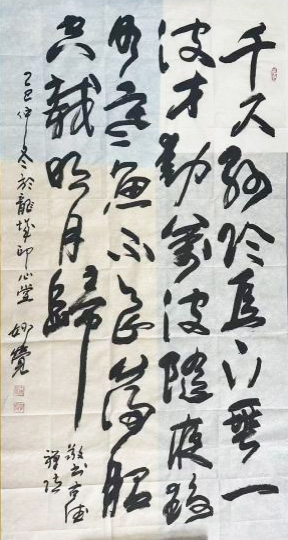 千尺絲綸直下垂一
波才動萬波隨夜靜
水寒魚不食滿船
空載明月歸
敬書古德
禪詩
乙巳仲冬於龍城印心堂 妙覺